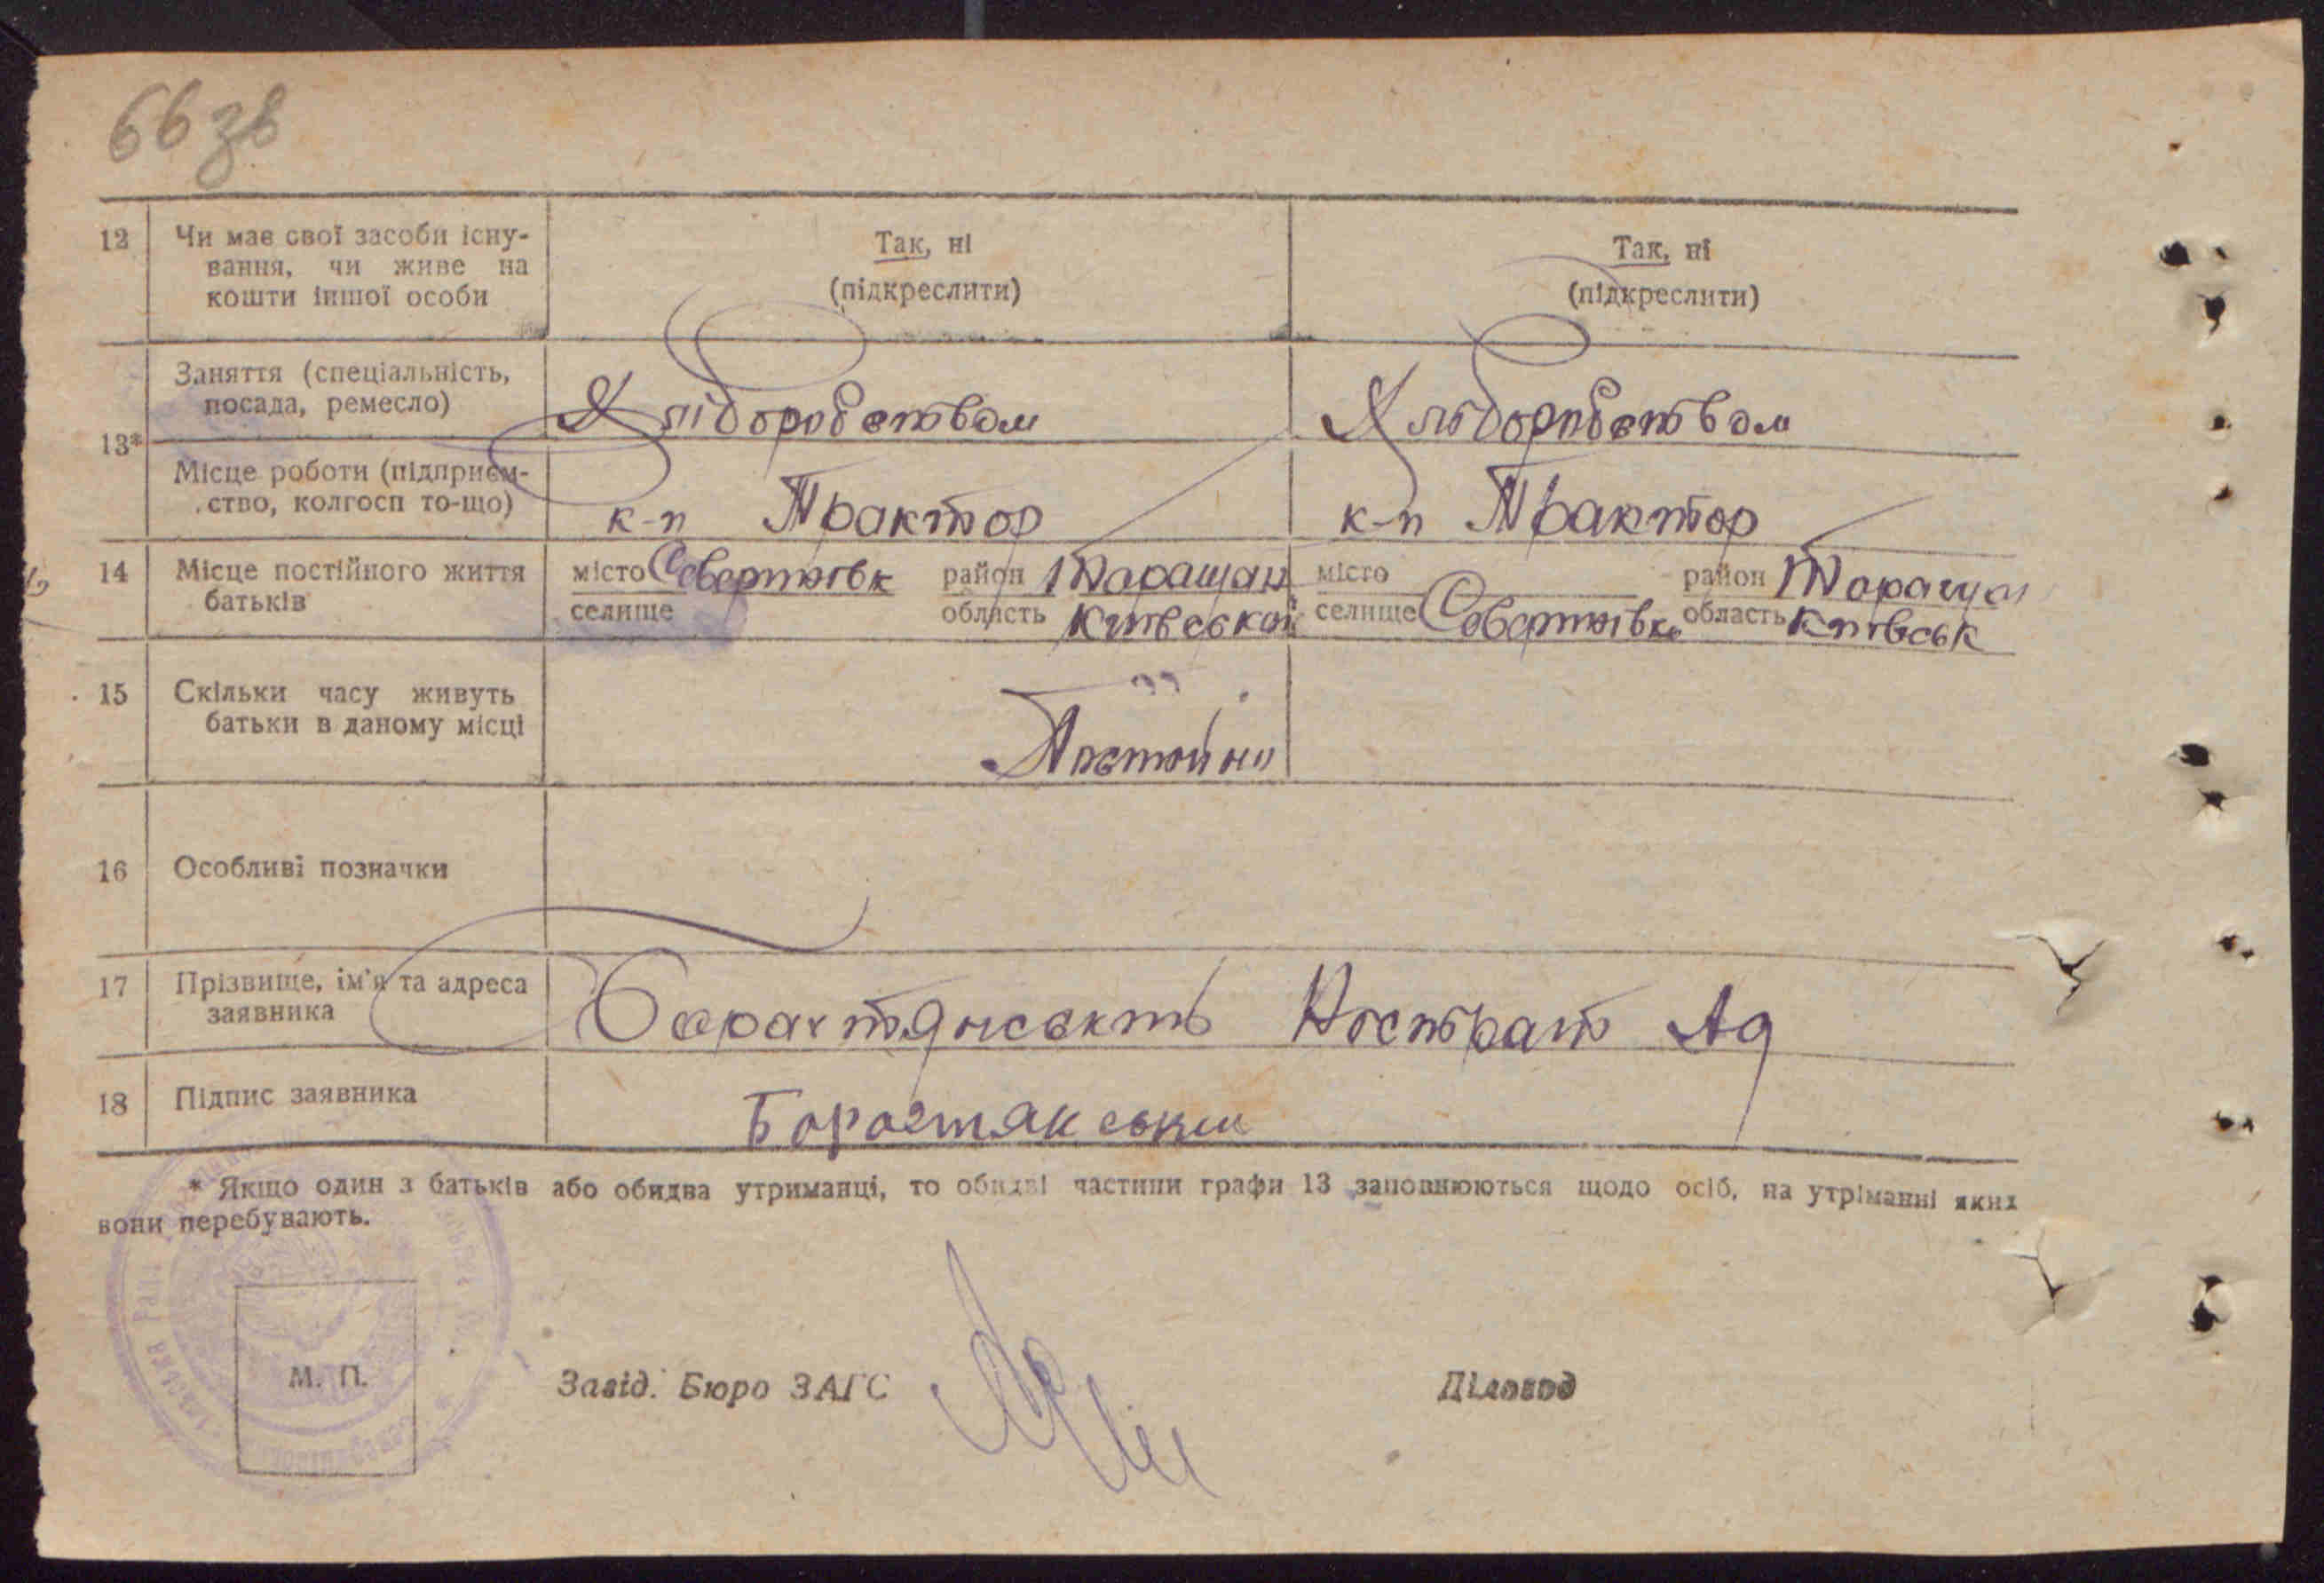 66 зв
12 Чи має свої засоби існу- Так, ні Так, ні
вання, чи живе на (підкреслити) (підкреслити)
кошти іншої особи
13* Заняття (спеціальність, Хліборобством Хліборобством
посада, ремесло)
Місце роботи (підприєм- к-п Трактор к-п Трактор
ство, колгосп то-що)
14 Місце постійного життя місто район Таращан місто район Тараща
батьків селище область Київської селище область Київськ
15 Скільки часу живуть Постойно
батьки в даному місці
16 Особливі позначки
17 Прізвище, ім'я та адреса
заявника
18 Підпис заявника
* Якщо один з батьків або обидва утриманці, то обидві частини графи 13 заповнюються щодо осіб, на утріманні яких
вони перебувають.
М. П. Завід. Бюро ЗАГС Діловод